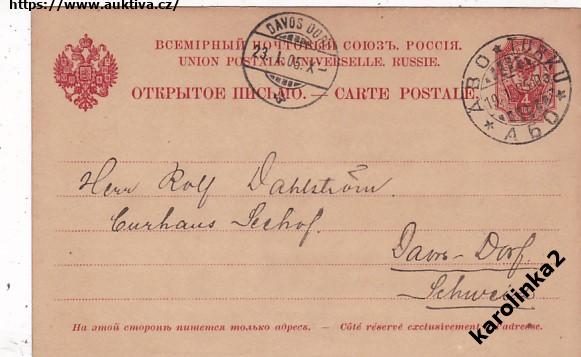 https://www.auktiva.cz/
ВСЕМІРНЫЙ ПОЧТОВЫЙ СОЮЗЪ. РОССІЯ.
UNION POSTALE UNIVERSELLE. RUSSIE.
ОТКРЫТОЕ ПИСЬМО. — CARTE POSTALE.
DAVOS DORF
23.X.05.X-
ÅBO * TURKU * АБО *
Herr Rolf Dahlström.
Curhaus Seehof.
Davos-Dorf.
Schweiz
На этой сторонѣ пишется только адресъ. — Côté réservé exclusivement à l'adresse.
karolinka2